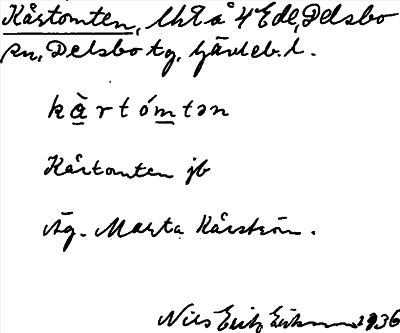 Kårtomten, lht å 4 Ede, Delsbo
sn, Delsbo tg, Gävleb. l.
kårtómtən
Kårtomten jb
Äg. Marta Kårström.
Nils Erik Erikson 1936